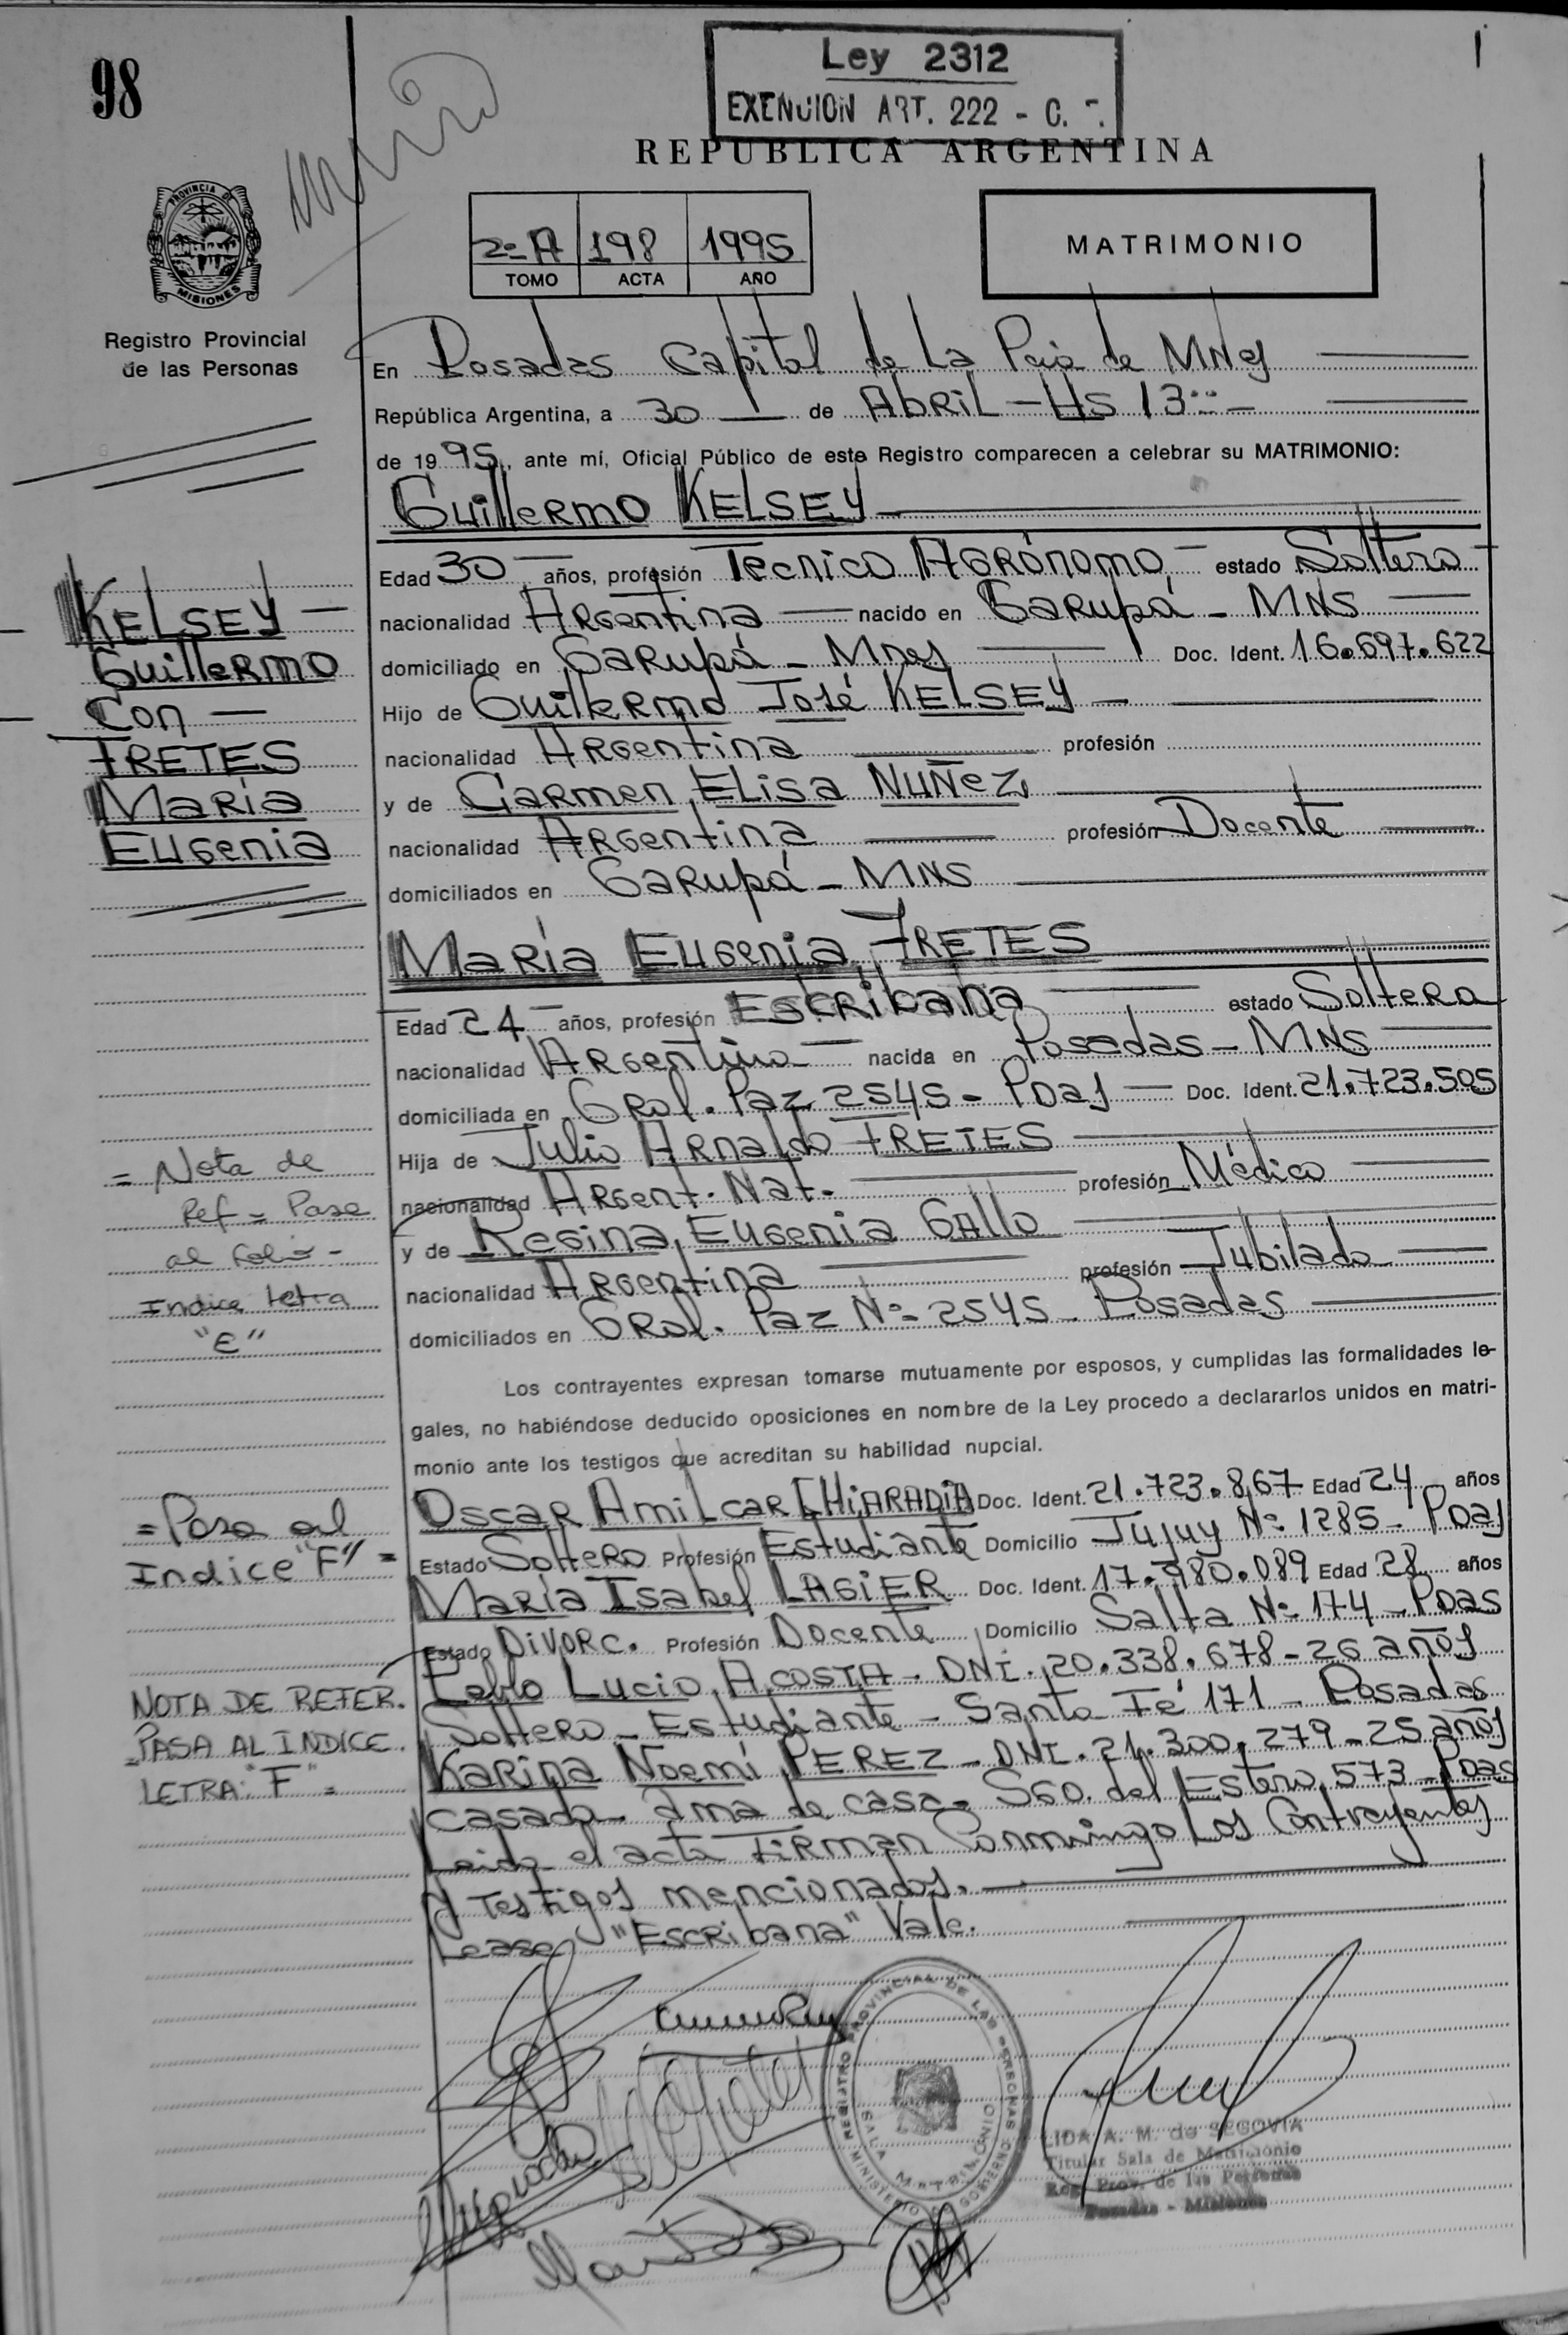 98
Ley 2312
EXENCION ART. 222 - C.
REPUBLICA ARGENTINA
PROVINCIA DE
MISIONES
Registro Provincial
de las Personas
2º A 198 1995
TOMO ACTA AÑO
MATRIMONIO
En Posadas Capital de La Pcia de MNes
República Argentina, a 30 de Abril - Hs 13
de 1995, ante mí, Oficial Público de este Registro comparecen a celebrar su MATRIMONIO:
Guillermo KELSEY
Edad 30 años, profesión Tecnico Agrónomo estado Soltero
nacionalidad Argentina nacido en Garupá - MNS
domiciliado en Garupá - Mnes Doc. Ident. 16.697.622
Hijo de Guillermo José KELSEY
nacionalidad Argentina profesión
y de Carmen Elisa NUÑEZ
nacionalidad Argentina profesión Docente
domiciliados en Garupá - MNS
KELSEY
Guillermo
Con
FRETES
María
Eugenia
María Eugenia FRETES
Edad 24 años, profesión Escribana estado Soltera
nacionalidad Argentina nacida en Posadas - MNS
domiciliada en Gral. Paz 2545 - Pdas Doc. Ident. 21.723.505
Hija de Julio Arnaldo FRETES
nacionalidad Argent. Nat. profesión Médico
y de Regina Eugenia Gallo
nacionalidad Argentina profesión Jubilado
domiciliados en Gral. Paz Nº 2545 - Posadas
= Nota de
Ref = Pase
al folio -
Indice letra
"E"
Los contrayentes expresan tomarse mutuamente por esposos, y cumplidas las formalidades le-
gales, no habiéndose deducido oposiciones en nombre de la Ley procedo a declararlos unidos en matri-
monio ante los testigos que acreditan su habilidad nupcial.
Oscar Amilcar CHIARADIA Doc. Ident. 21.723.867 Edad 24 años
Estado Soltero Profesión Estudiante Domicilio Jujuy Nº 1285 - Pdas
María Isabel LAGIER Doc. Ident. 17.980.089 Edad 28 años
Estado Divorc. Profesión Docente Domicilio Salta Nº 174 - Pdas
Pablo Lucio ACOSTA - DNI. 20.338.678 - 26 años
Soltero - Estudiante - Santa Fé 171 - Posadas
Karina Noemí PEREZ - DNI. 21.300.279 - 25 años
casada - ama de casa - Sgo. del Estero 573 - Pdas
Leida el acta firman conmingo Los Contrayentes
y testigos mencionados.
Lease "Escribana" Vale.
= Pasa al
Indice "F" =
NOTA DE REFER.
PASA AL INDICE.
LETRA: "F" =
REGISTRO PROVINCIAL DE LAS PERSONAS
SALA MATRIMONIO
MINISTERIO DE GOBIERNO
LIDA A. M. de SEGOVIA
Titular Sala de Matrimonio
Reg. Prov. de las Personas
Posadas - Misiones